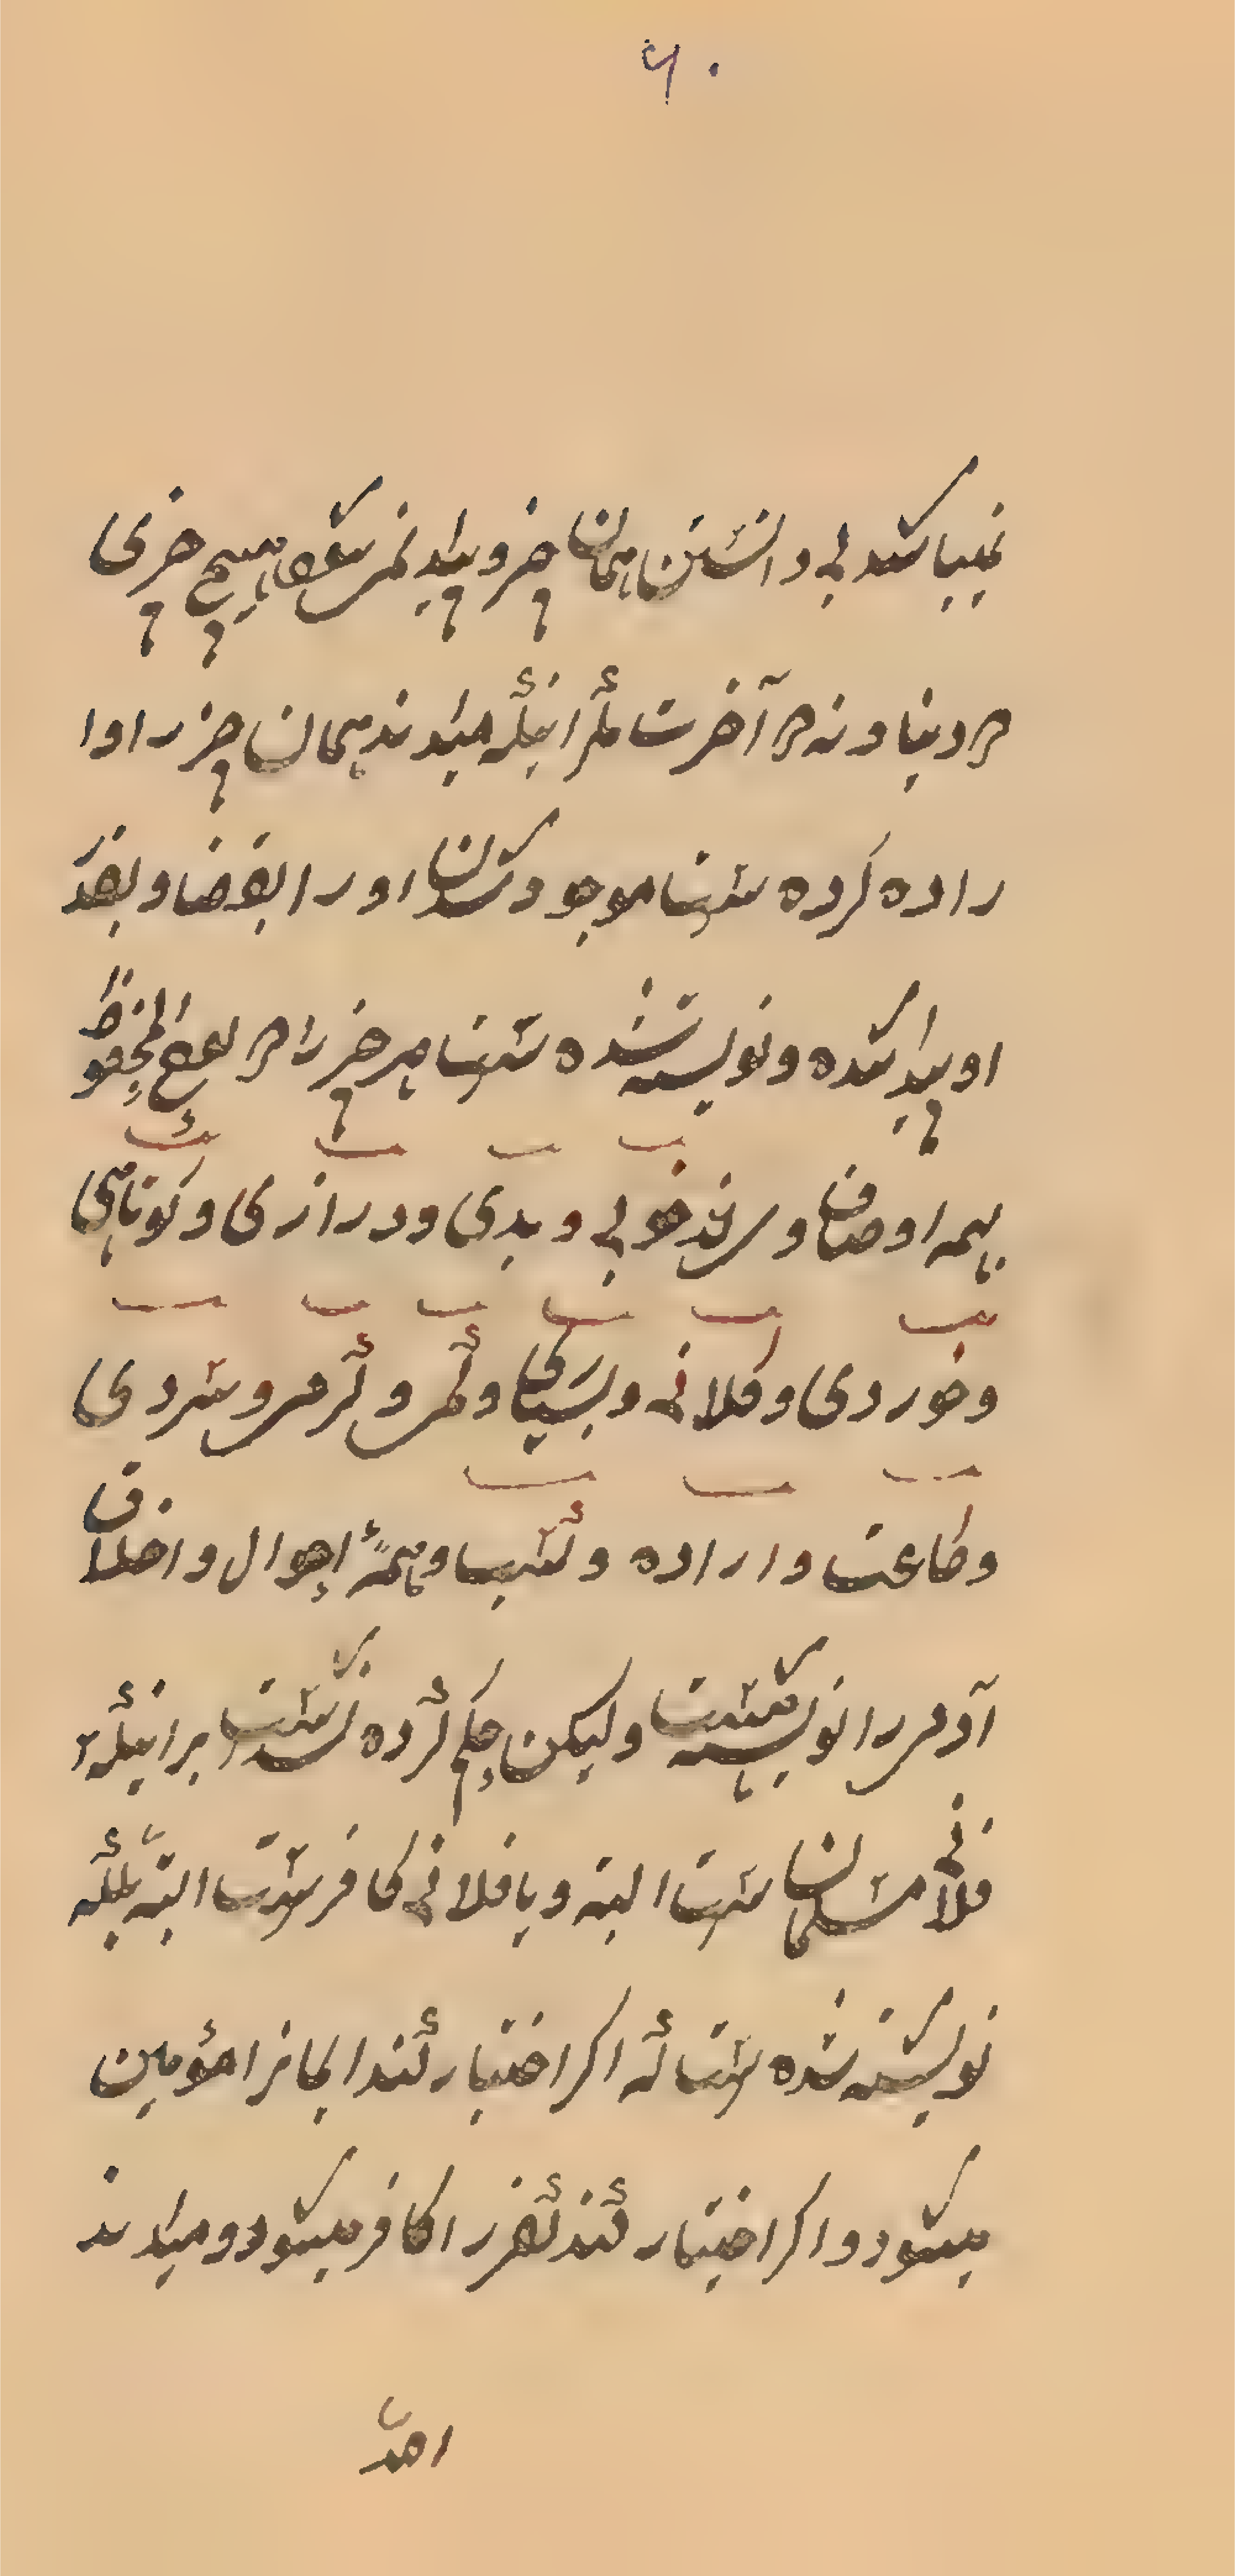 ۶۰
نمیباشد بی دانستن همان چیز و پیدا نمیشود هیچ چیزی
در دنیا و نه در آخرت مکر انیکه میداند همان چیز را و ا
راده کرده ست موجود شدن او را بقضا و بقدر
او پیدا شده و نویسته شده ست هر چیز را در لوح المحفوظ
بهمه اوصاف وی از خوبی و بدی و درازی و کوتاهی
و خوردی و کلانی و بسیاری و کمی و کرمی و سردی
و طاعت و اراده و کسب و همهٔ احوال و اخلاق
آدمی را نویسته شدست ولیکن حکم کرده نشدست بر انیکه
فلانی مسلمان ست البته و یا فلانی کافرست البته بلکه
نویشته شده ست که اکر اختیار کند ایمانرا مؤمین
میشود و اکر اختیار کند کفر را کافر میشود و میداند